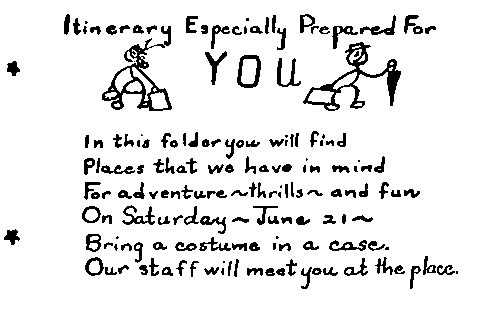 Itinerary Especially Prepared For
YOU
In this folder you will find
Places that we have in mind
For adventure ~ thrills ~ and fun
On Saturday ~ June 21 ~
Bring a costume in a case.
Our staff will meet you at the place.